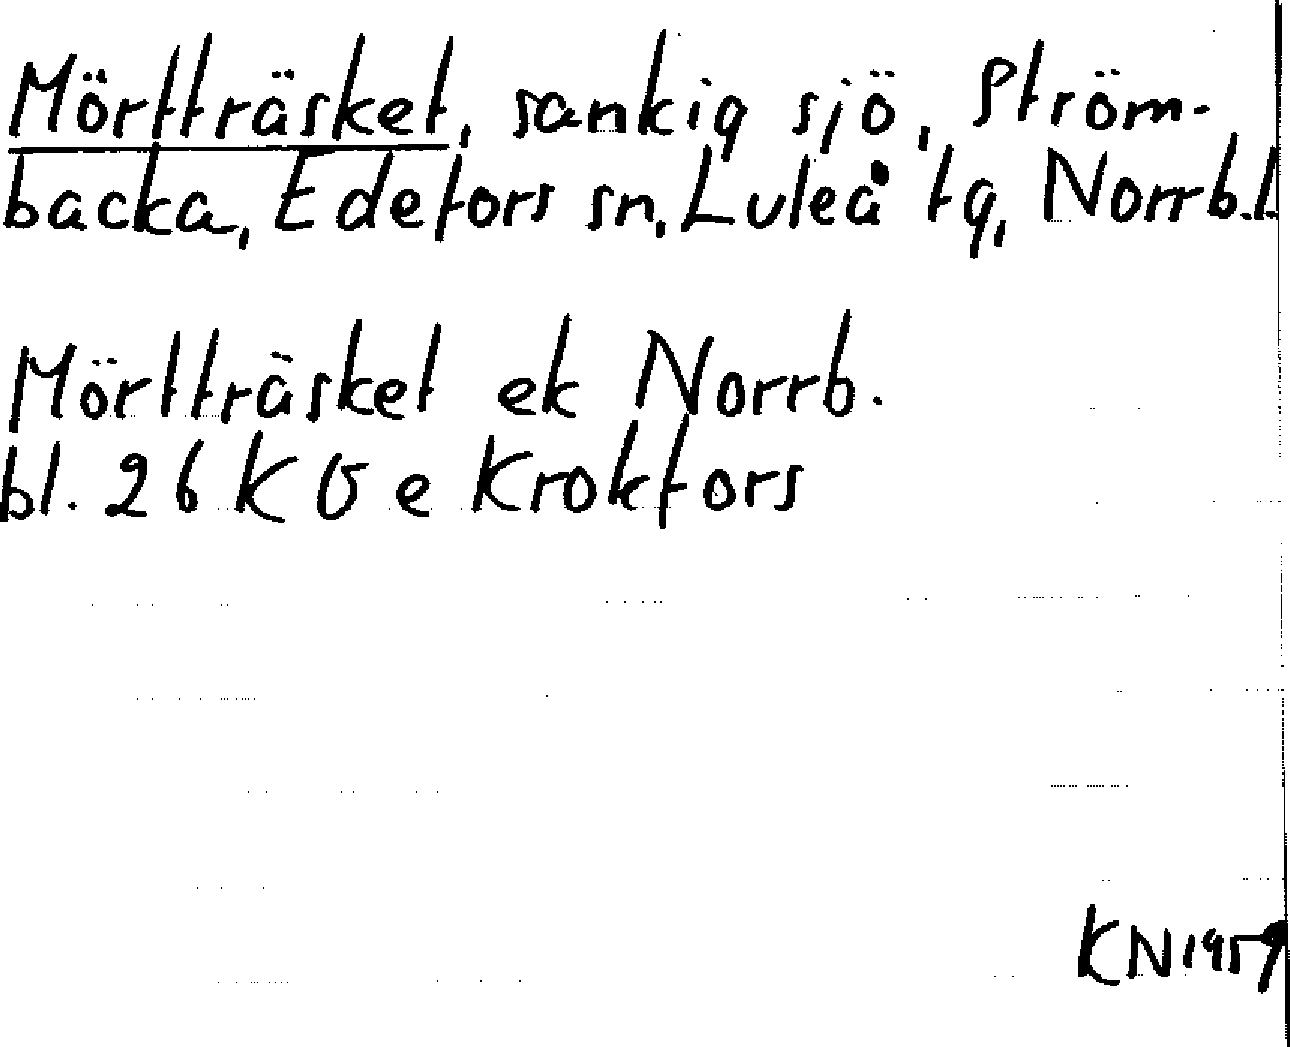 Mörtträsket, sankig sjö, Ström-
backa, Edefors sn, Luleå tg, Norrb.l.
Mörtträsket ek Norrb.
bl. 26 K Ö e Krokfors
KN 1959